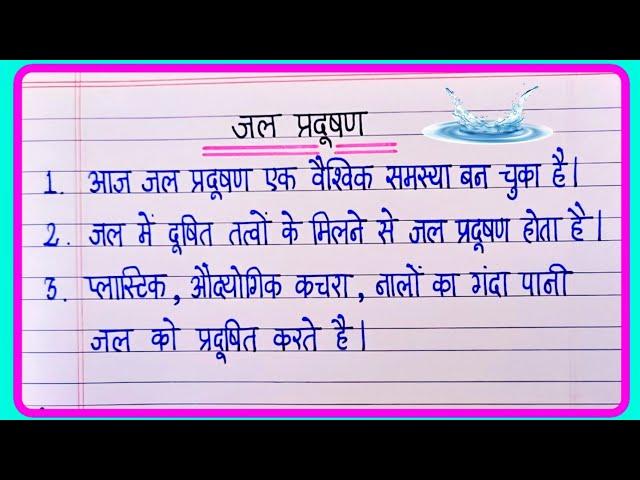 जल प्रदूषण
1. आज जल प्रदूषण एक वैश्विक समस्या बन चुका है।
2. जल में दूषित तत्वों के मिलने से जल प्रदूषण होता है।
3. प्लास्टिक, औद्योगिक कचरा, नालों का गंदा पानी
जल को प्रदूषित करते है।